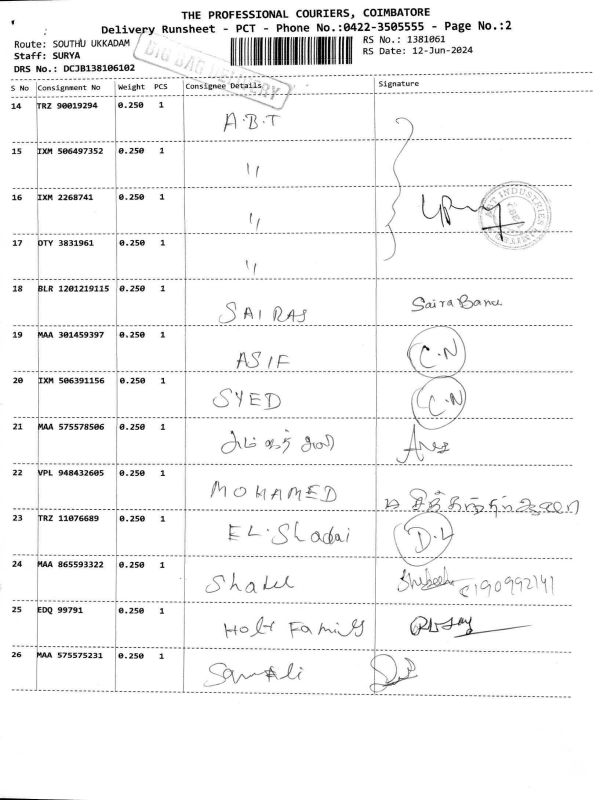 THE PROFESSIONAL COURIERS, COIMBATORE
Delivery Runsheet - PCT - Phone No.:0422-3505555 - Page No.:2
Route: SOUTHU UKKADAM RS No.: 1381061
Staff: SURYA RS Date: 12-Jun-2024
DRS No.: DCJB138106102
BIG BAG DELIVERY
S No Consignment No Weight PCS Consignee Details Signature
14 TRZ 90019294 0.250 1 A.B.T
15 IXM 506497352 0.250 1 "
16 IXM 2268741 0.250 1 "
17 OTY 3831961 0.250 1 "
18 BLR 1201219115 0.250 1 SAIRAS Saira Banu
19 MAA 301459397 0.250 1 ASIF C.N
20 IXM 506391156 0.250 1 SYED C.N
21 MAA 575578506 0.250 1
22 VPL 948432605 0.250 1 MOHAMED
23 TRZ 11076689 0.250 1 EL-Shadai D.L
24 MAA 865593322 0.250 1
25 EDQ 99791 0.250 1 Holy Family
26 MAA 575575231 0.250 1